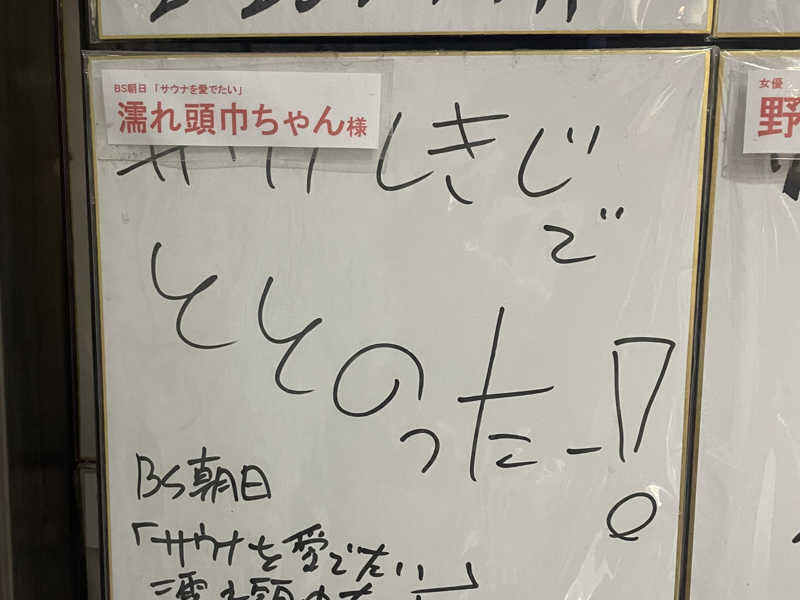 BS朝日 「サウナを愛でたい」
濡れ頭巾ちゃん様
サウナしきじ
で
ととのったー!
BS朝日
「サウナを愛でたい」
濡れ頭巾
女優
野